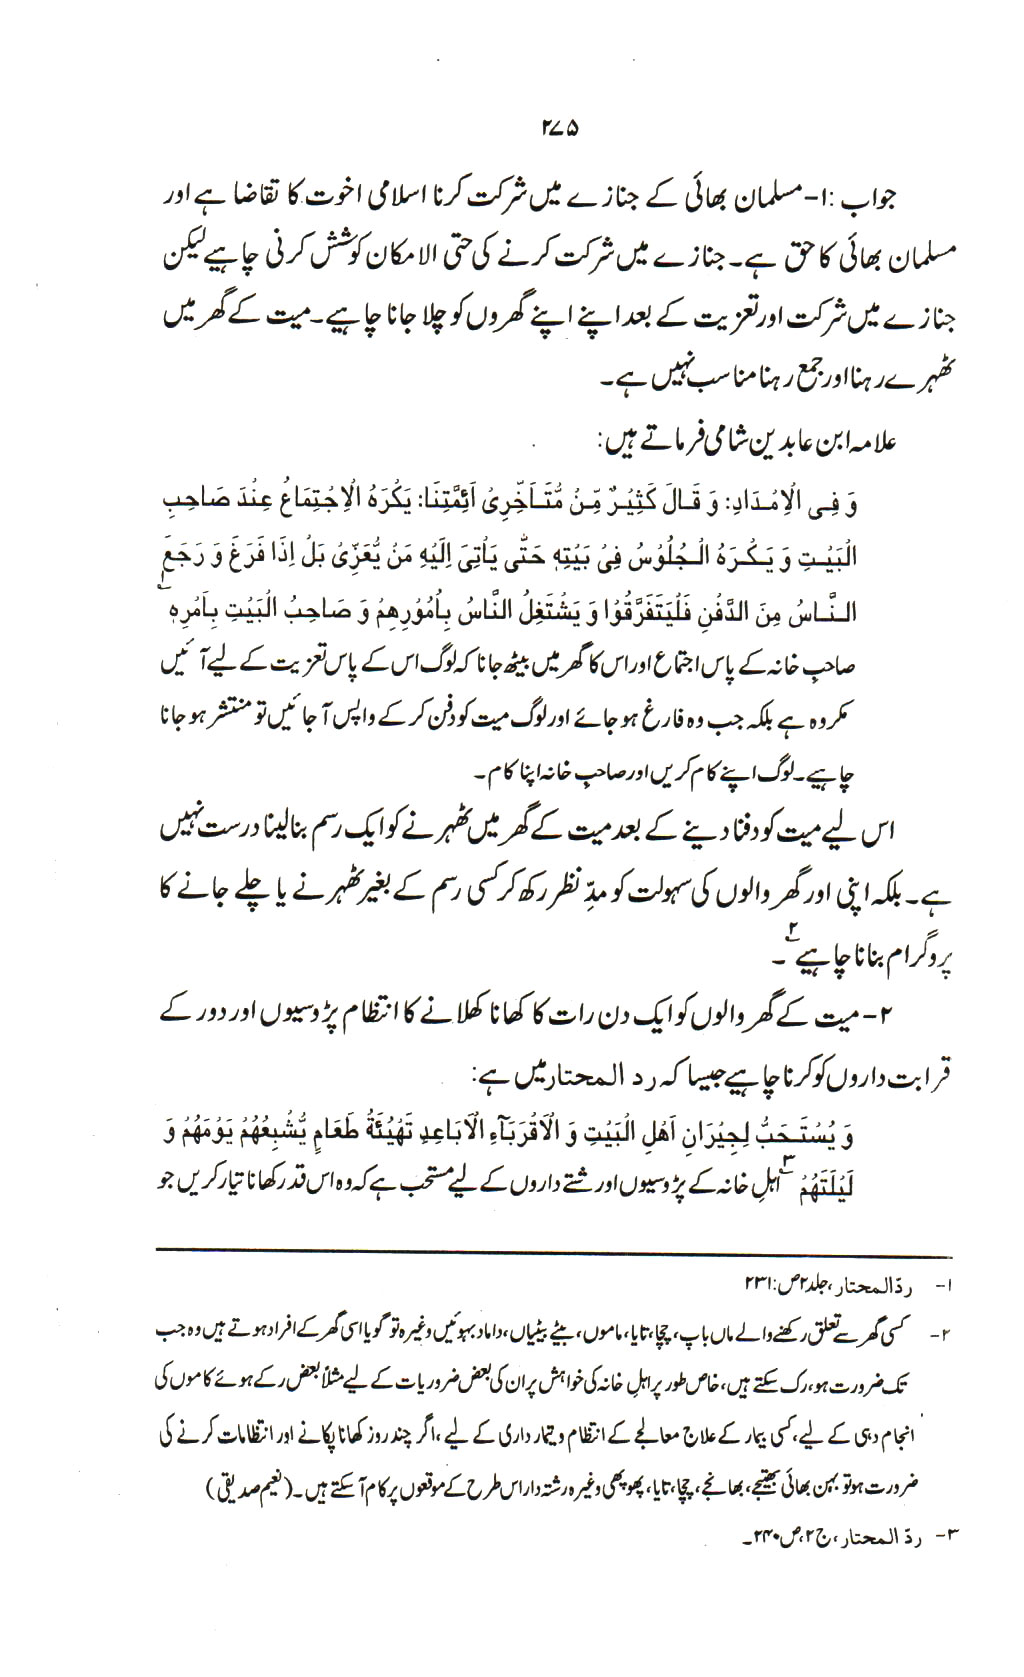 ۲۷۵
جواب :۱- مسلمان بھائی کے جنازے میں شرکت کرنا اسلامی اخوت کا تقاضا ہے اور
مسلمان بھائی کا حق ہے۔ جنازے میں شرکت کرنے کی حتی الامکان کوشش کرنی چاہیے لیکن
جنازے میں شرکت اور تعزیت کے بعد اپنے اپنے گھروں کو چلا جانا چاہیے۔ میت کے گھر میں
ٹھہرے رہنا اور جمع رہنا مناسب نہیں ہے۔
علامہ ابن عابدین شامی فرماتے ہیں:
وَ فِی الْاِمْدَادِ: وَ قَالَ کَثِیْرٌ مِّنْ مُّتَاَخِّرِیْ اَئِمَّتِنَا: یَکْرَہُ الْاِجْتِمَاعُ عِنْدَ صَاحِبِ
الْبَیْتِ وَ یَکْرَہُ الْجُلُوْسُ فِیْ بَیْتِہٖ حَتّٰی یَأْتِیَ اِلَیْہِ مَنْ یُّعَزِّیْ بَلْ اِذَا فَرَغَ وَ رَجَعَ
النَّاسُ مِنَ الدَّفْنِ فَلْیَتَفَرَّقُوْا وَ یَشْتَغِلُ النَّاسُ بِاُمُوْرِھِمْ وَ صَاحِبُ الْبَیْتِ بِاَمْرِہٖ ۱؎
صاحبِ خانہ کے پاس اجتماع اور اس کا گھر میں بیٹھ جانا کہ لوگ اس کے پاس تعزیت کے لیے آئیں
مکروہ ہے بلکہ جب وہ فارغ ہو جائے اور لوگ میت کو دفن کر کے واپس آجائیں تو منتشر ہو جانا
چاہیے۔ لوگ اپنے کام کریں اور صاحبِ خانہ اپنا کام۔
اس لیے میت کو دفنا دینے کے بعد میت کے گھر میں ٹھہرنے کو ایک رسم بنالینا درست نہیں
ہے۔ بلکہ اپنی اور گھر والوں کی سہولت کو مدِّ نظر رکھ کر کسی رسم کے بغیر ٹھہرنے یا چلے جانے کا
پروگرام بنانا چاہیے ۲؎۔
۲- میت کے گھر والوں کو ایک دن رات کا کھانا کھلانے کا انتظام پڑوسیوں اور دور کے
قرابت داروں کو کرنا چاہیے جیسا کہ رد المحتار میں ہے:
وَ یُسْتَحَبُّ لِجِیْرَانِ اَھْلِ الْبَیْتِ وَ الْاَقْرَبَآءِ الْاَبَاعِدِ تَھْیِئَۃُ طَعَامٍ یُّشْبِعُھُمْ یَوْمَھُمْ وَ
لَیْلَتَھُمْ ۳؎ اہلِ خانہ کے پڑوسیوں اور رشتے داروں کے لیے مستحب ہے کہ وہ اس قدر کھانا تیار کریں جو
۱- ردّ المحتار، جلد ۲ ص: ۲۳۱
۲- کسی گھر سے تعلق رکھنے والے ماں باپ، چچا، تایا، ماموں، بیٹے بیٹیاں، داماد بہوئیں وغیرہ تو گویا اسی گھر کے افراد ہوتے ہیں وہ جب
تک ضرورت ہو، رک سکتے ہیں، خاص طور پر اہلِ خانہ کی خواہش پر ان کی بعض ضروریات کے لیے مثلاً بعض رکے ہوئے کاموں کی
انجام دہی کے لیے، کسی بیمار کے علاج معالجے کے انتظام و تیمار داری کے لیے ،اگر چند روز کھانا پکانے اور انتظامات کرنے کی
ضرورت ہو تو بہن بھائی بھتیجے، بھانجے، چچا، تایا، پھوپھی وغیرہ رشتہ دار اس طرح کے موقعوں پر کام آسکتے ہیں۔ (نعیم صدیقی)
۳- ردّ المحتار، ج ۲، ص ۲۴۰۔